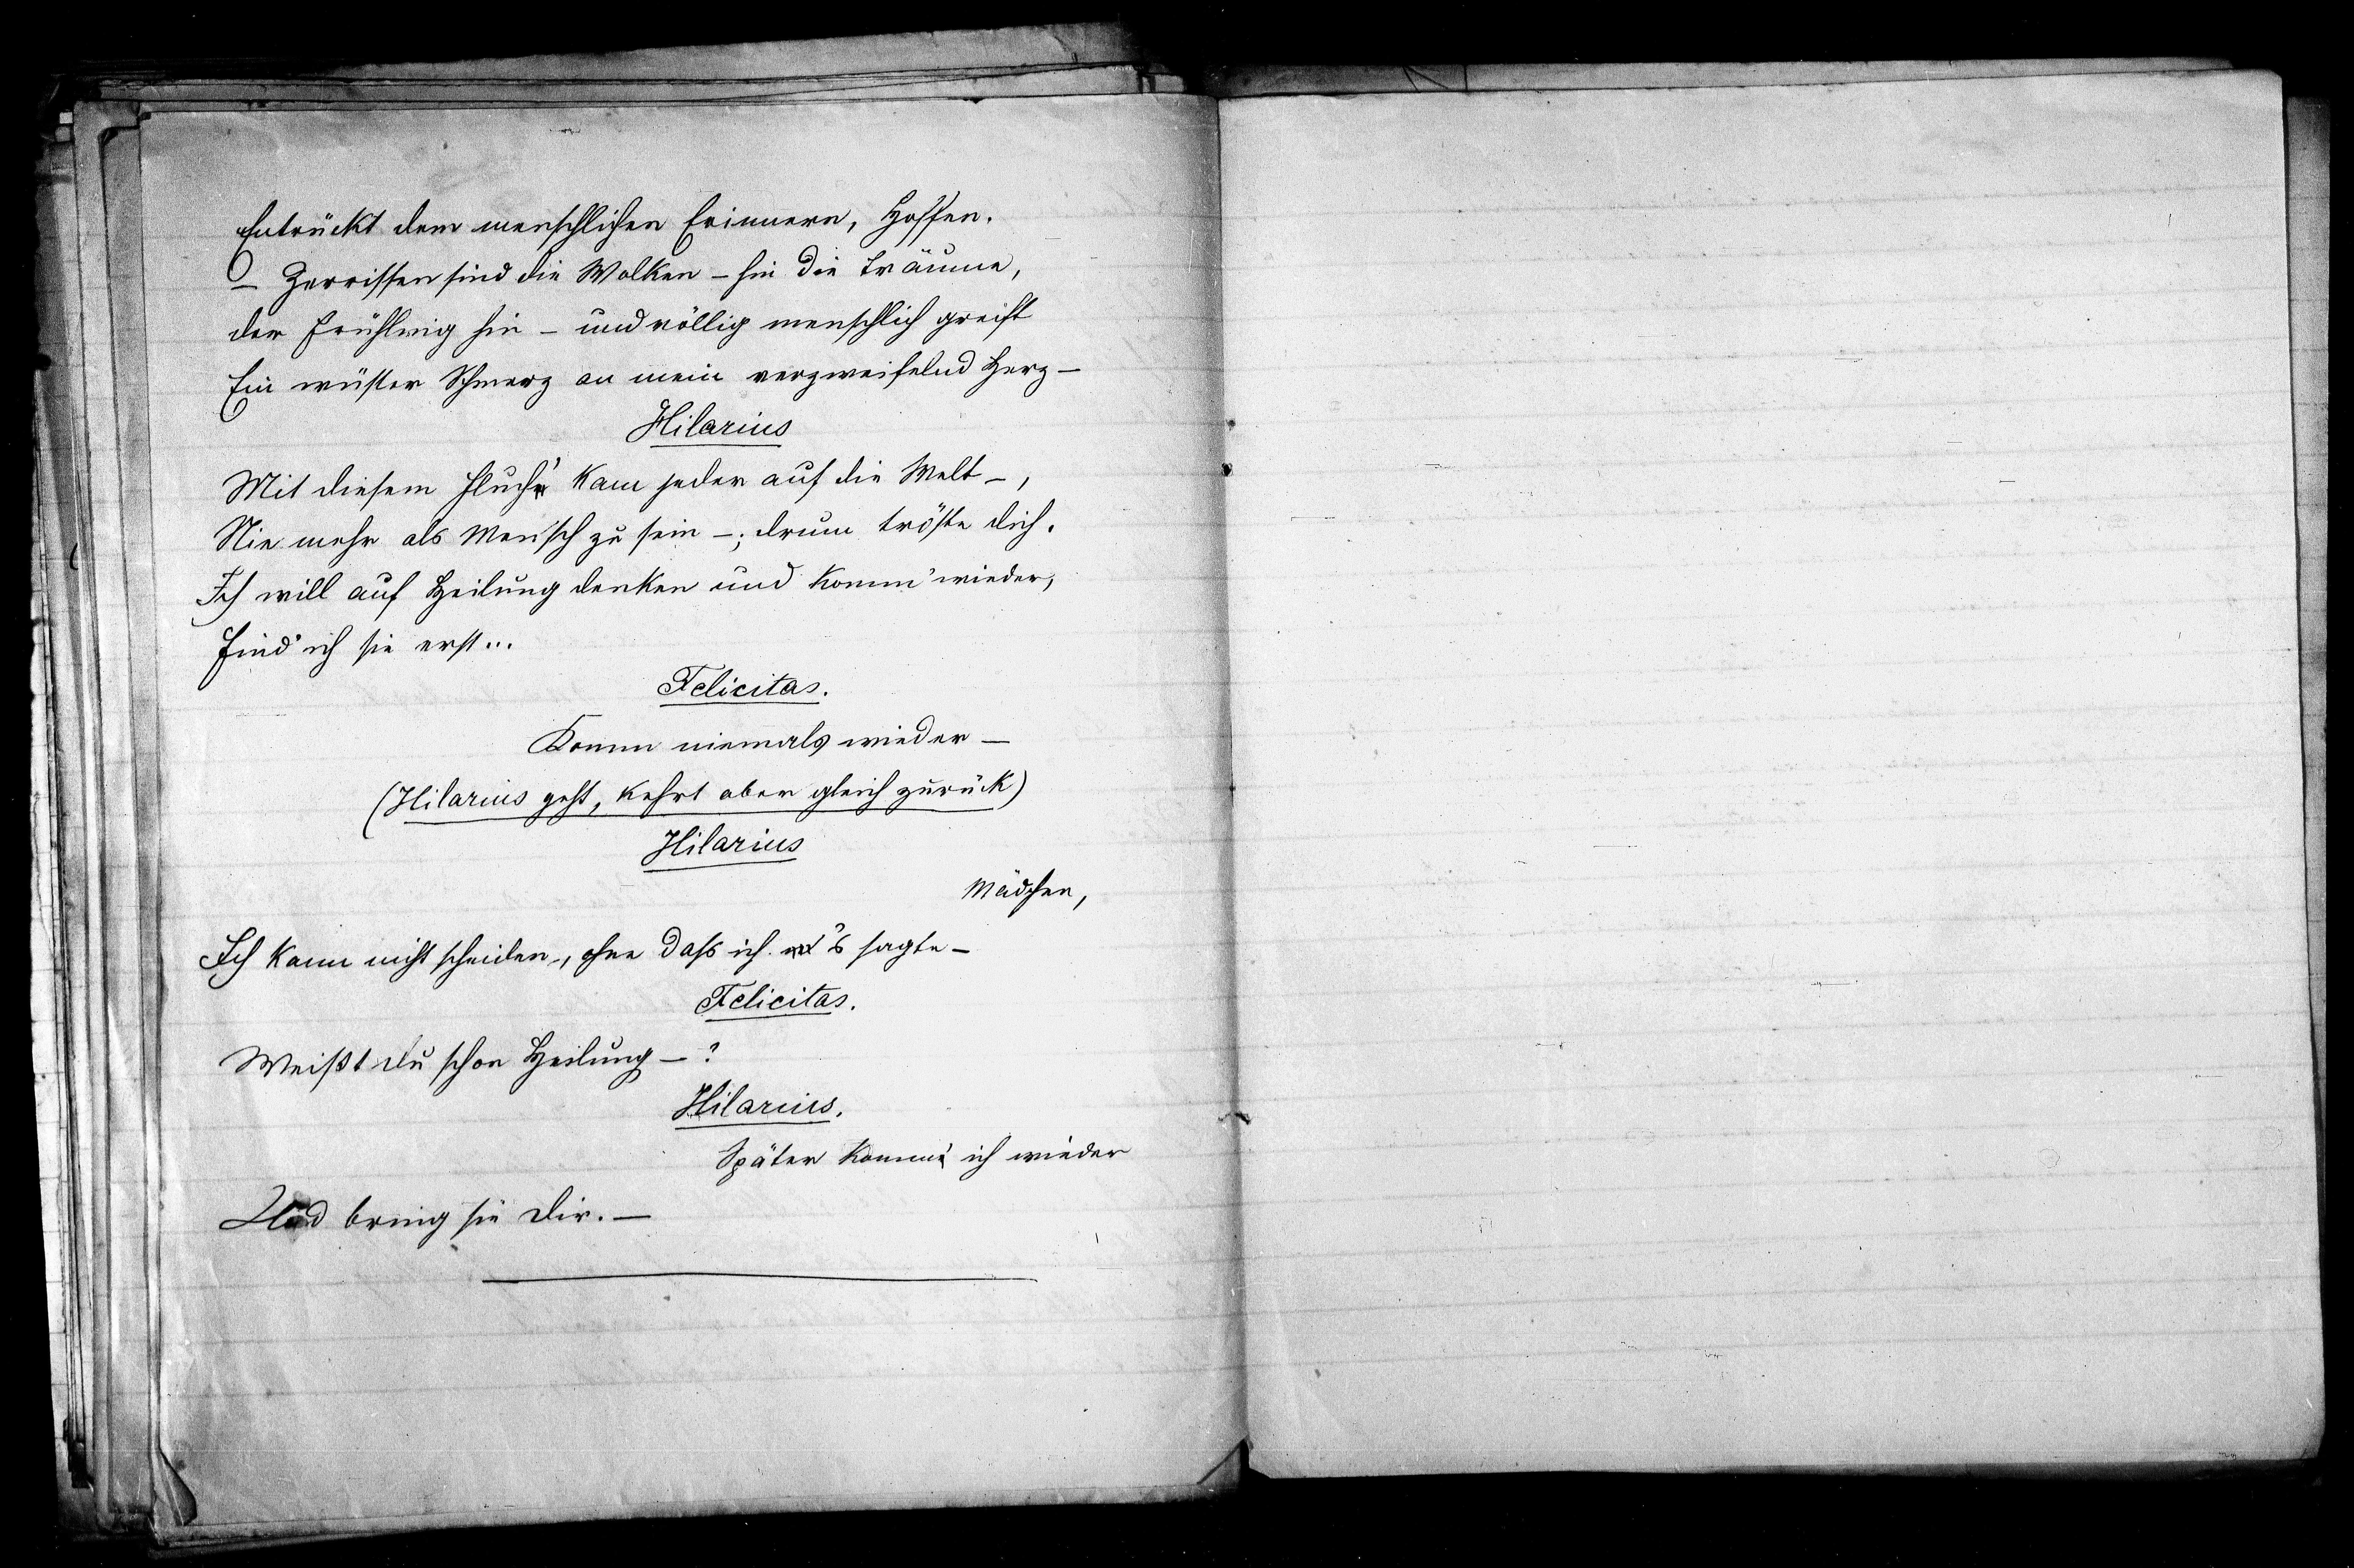 Entrückt dem menschlichen Erinnern, Hoffen.
– Zerrissen sind die Wolken – hin die Träume,
der Frühling hin – und völlig menschlich greift
Ein wüster Schmerz an mein verzweifelnd Herz –
Hilarius
Mit diesem Fluch' kam jeder auf die Welt –,
Nie mehr als Mensch zu sein –; drum tröste dich.
Ich will auf Heilung denken und komm' wieder,
Find' ich sie erst...
Felicitas.
Komm niemals wieder –
(Hilarius geht, kehrt aber gleich zurück)
Hilarius
Mädchen,
Ich kann nicht scheiden, ohne daß ich 's sagte –
Felicitas.
Weißt du schon Heilung – ?
Hilarius.
Später komm' ich wieder
Und bring sie dir. –